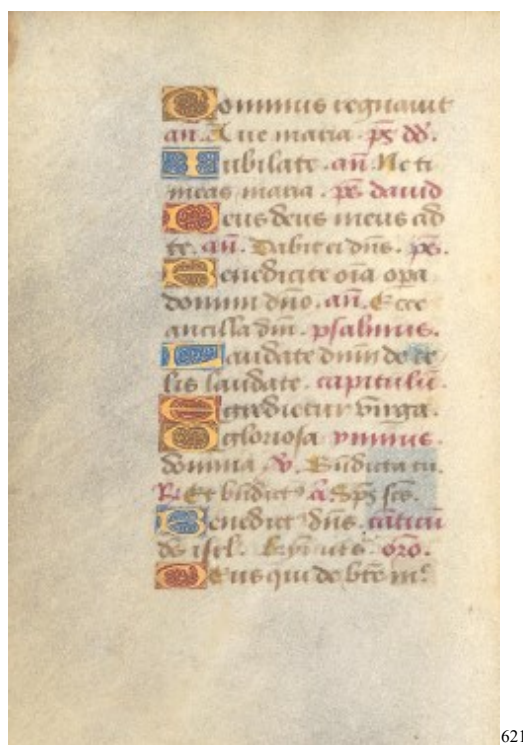 Dominus regnauit
an. Aue maria. ps dd.
Iubilate. an. Ne ti
meas maria. ps dauid
Deus deus meus ad
te. an. Dabit ei dns. ps.
Benedicite oia opa
domini dno. an. Ecce
ancilla dni. psalmus.
Laudate dnm de ce
lis laudate. capitulu.
Egredietur virga.
O gloriosa ymnus.
domina. V. Bndicta tu.
R. Et bndict a. Sps scs.
Benedict dns. canticu
de isrl. oro.
Deus qui de bte m
621